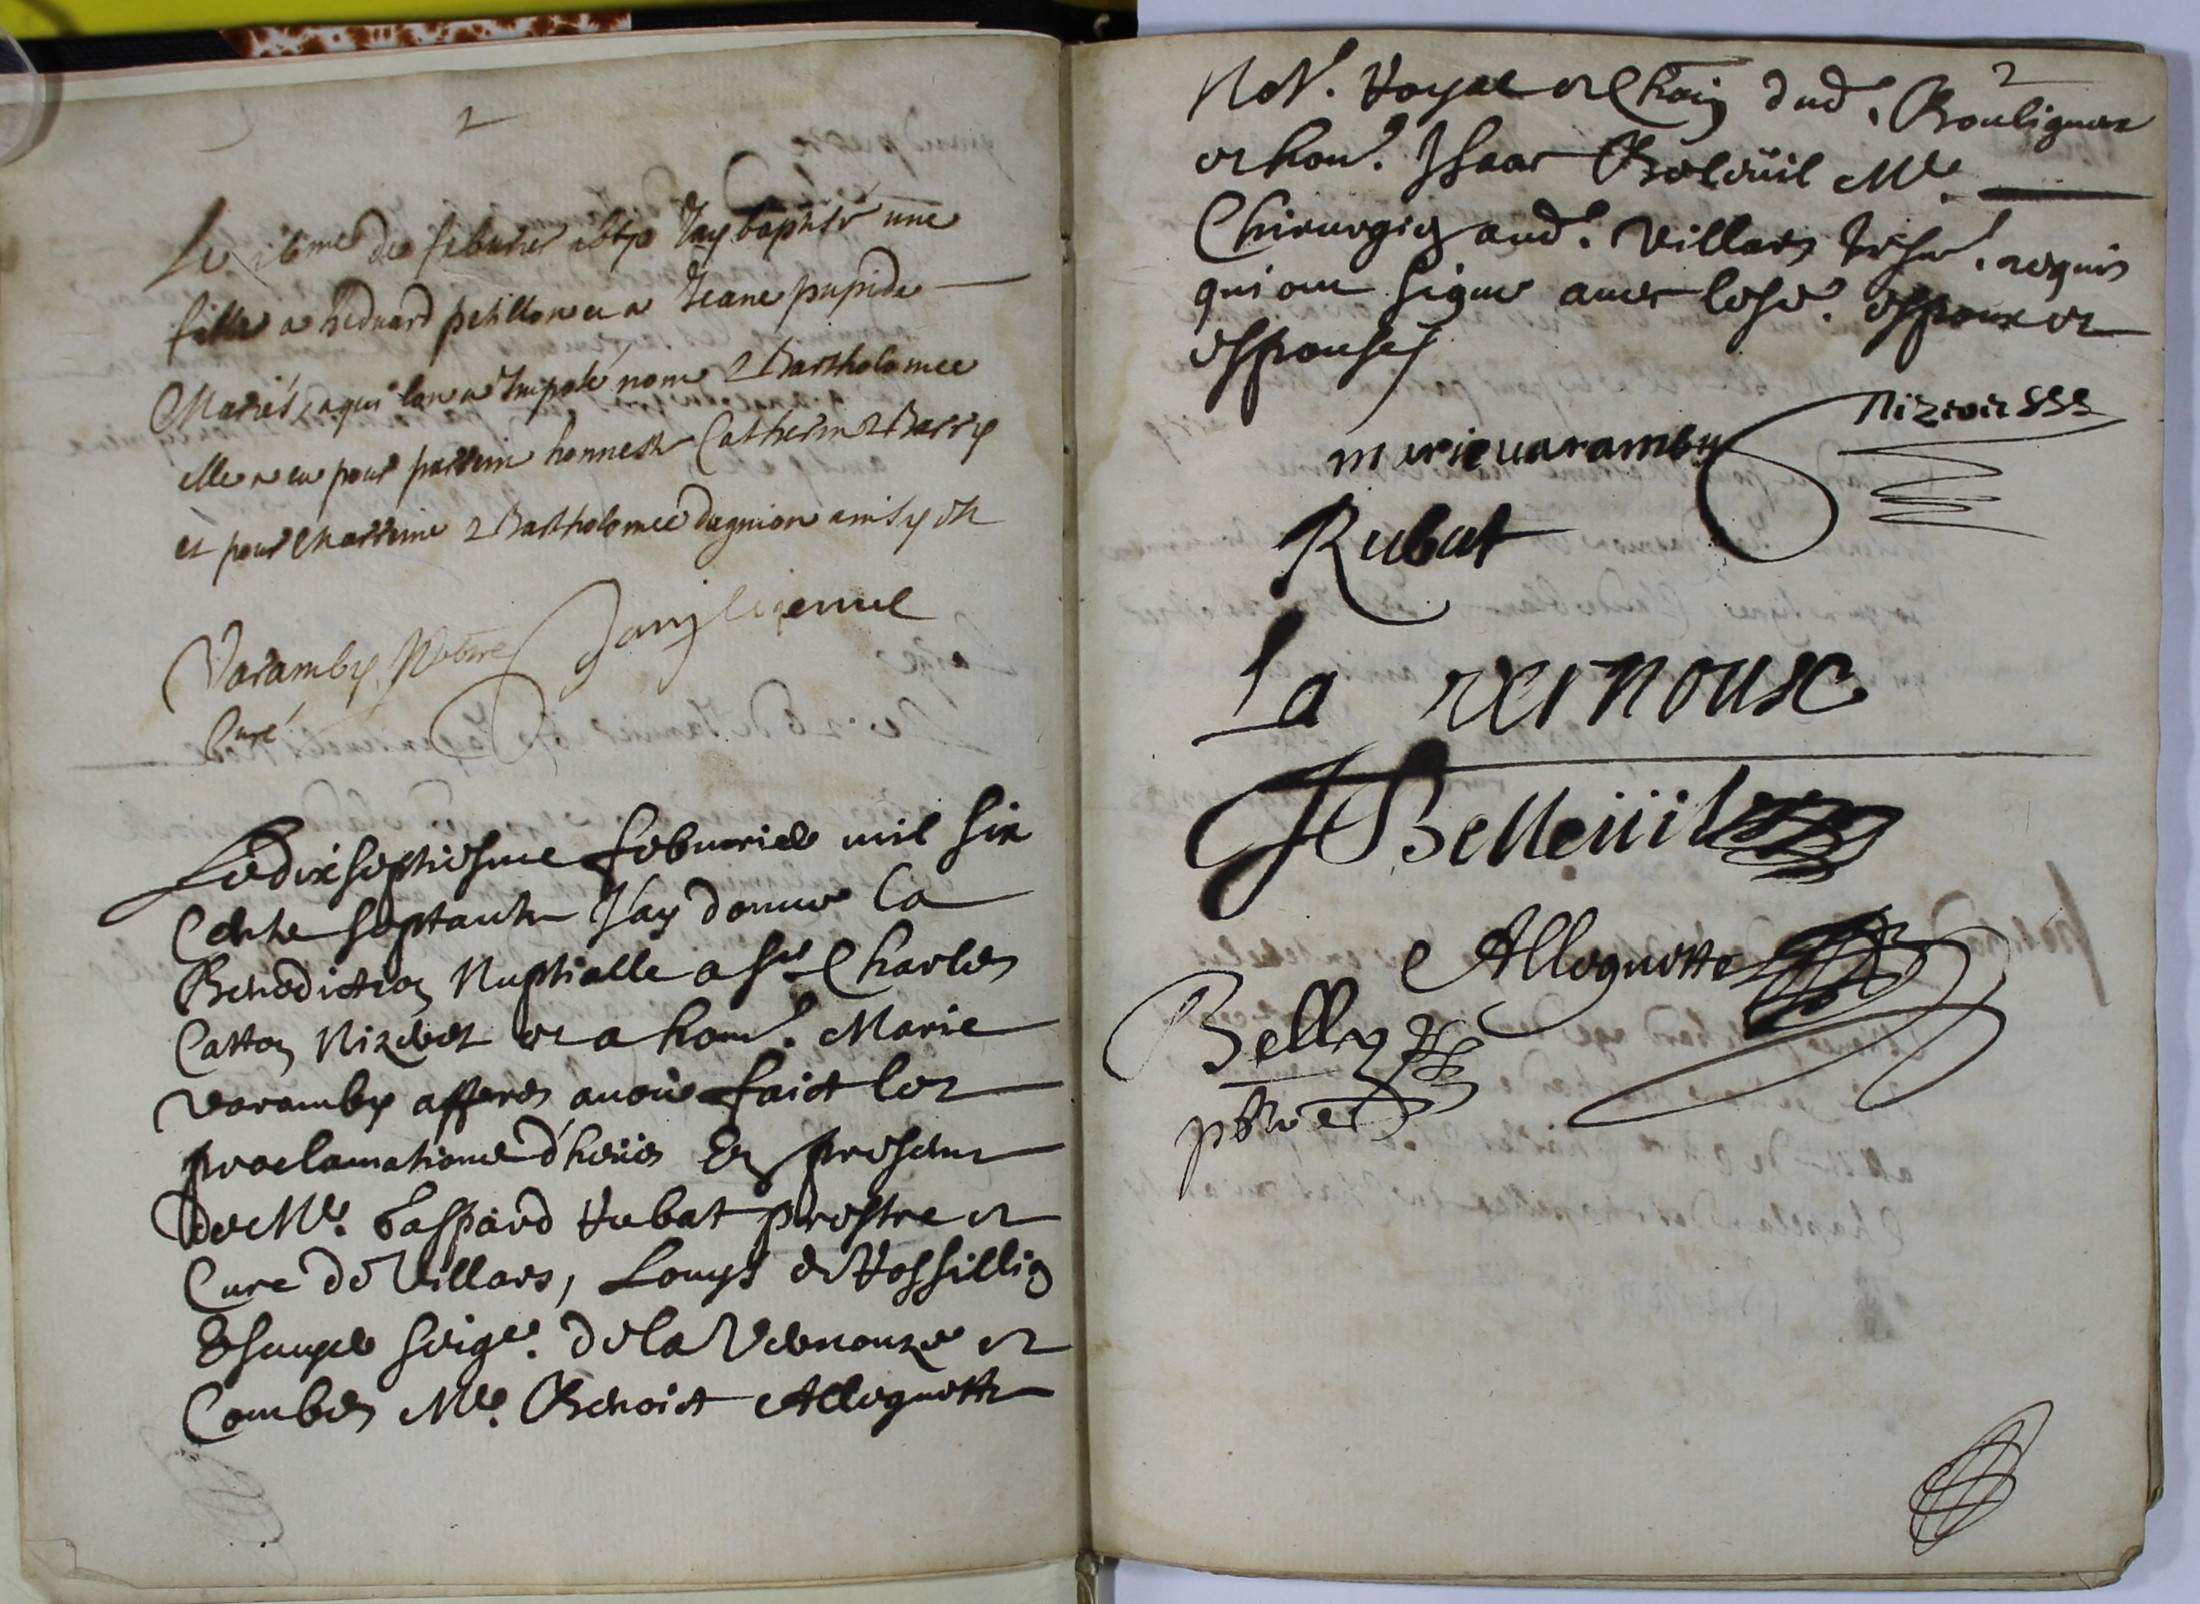 2
Le 16me de febvrier 1670 Jay baptisé une
fille a heduard petillon et a Jeane pupide
Mariés, a qui lon a Imposé nom Bartholomee
elle a eu pour parrein honneste Catherin Barry
et pour Marreine Bartholomee dagnion ainsy est
Varamby Pbtre
Curé
Le dixseptiesme febvrier mil six
Cents septante J'ay donné La
Benediction Nuptialle a sr Charles
Catton Nizeret et a hon.e Marie
Varamby appres avoir faict les
proclamations d'heues En presence
de Mre. Gaspard Rubat prestre et
Curé de Villars, Louys de Rossillion
Escuyer seigr. de la Vernouze et
Combes Me. Benoict Alloguette
2
Not.e Royal et Chain dud. Bouligneux
et hon.e Isaac Beleüil Me.
Chirurgien aud. Villars tesm. requis
qui ont signé avec lesd. espoux et
espouse
Nizeret
marie varamby
Rubat
La vernouse
J Belleüil
Alloguette
Belly
pbtre